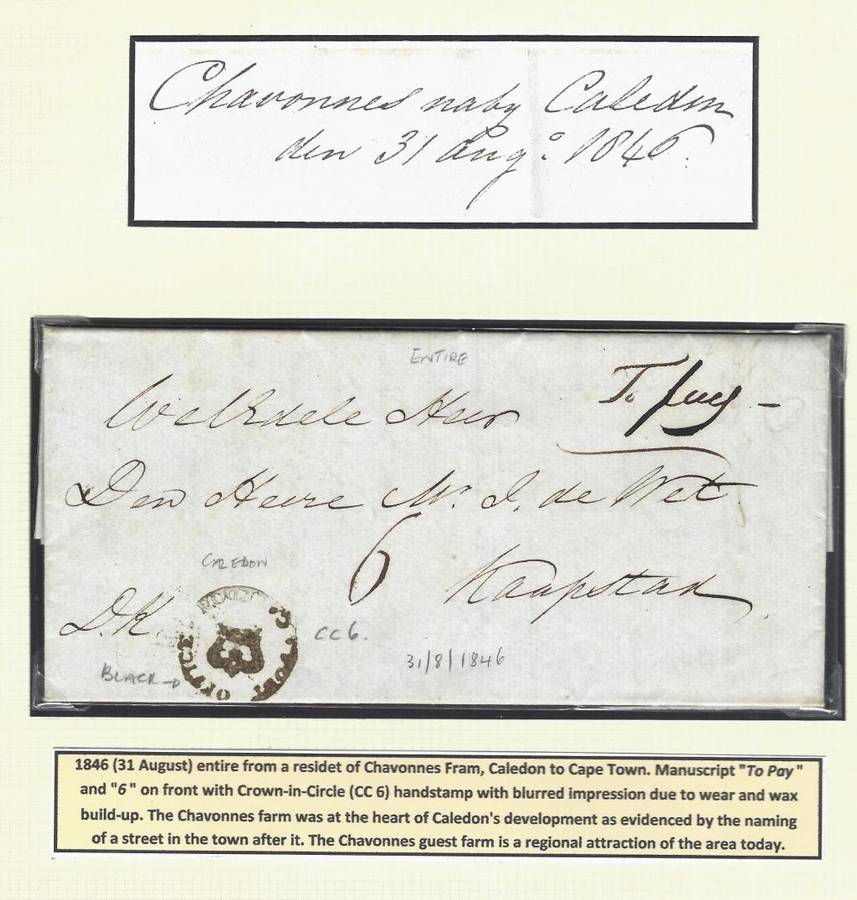 Chavonnes naby Caledon
den 31 Augo. 1846.
ENTIRE
To pay -
WelEdele Heer
Den Heere Mr. J. de Wet
6
CALEDON
Kaapstad
D.K
POST OFFICE
CC 6.
31/8/1846
BLACK
1846 (31 August) entire from a residet of Chavonnes Fram, Caledon to Cape Town. Manuscript "To Pay"
and "6" on front with Crown-in-Circle (CC 6) handstamp with blurred impression due to wear and wax
build-up. The Chavonnes farm was at the heart of Caledon's development as evidenced by the naming
of a street in the town after it. The Chavonnes guest farm is a regional attraction of the area today.